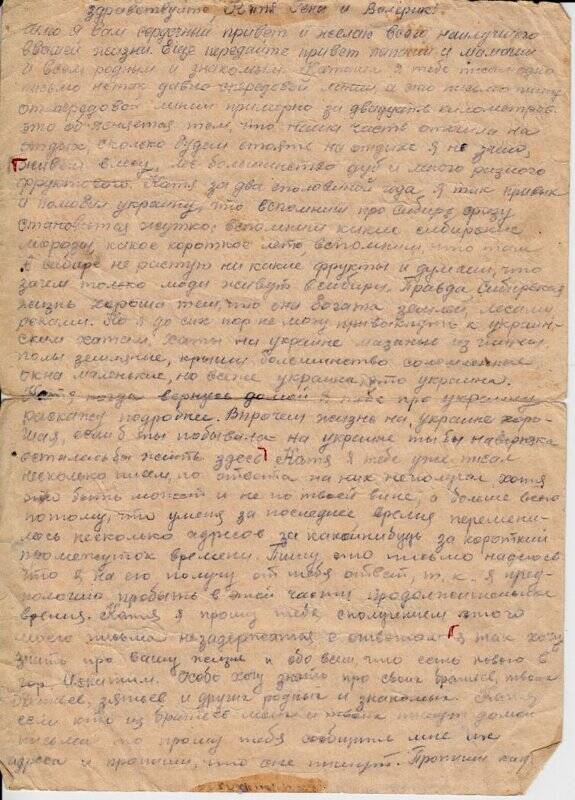 Здравствуйте, Катя Гена и Валерик!
Шлю я вам сердечный привет и желаю всего наилучшего
в вашей жизни. Еще передайте привет папаши и мамаши
и всем родным и знакомым. Каташа я тебе писал одно
письмо не так давно с передовой линии а это письмо пишу
от передовой линии примерно за двадцать километров
это об'ясняется тем, что наша часть отошла на
отдых, сколько будем стоять на отдыхе я не знаю,
живем в лесу, лес большинство дуб и много разного
фруктового. Катя за два с половиной года я так привык
и полюбил украину, что вспомниш про сибирь сразу
становиться жутко; вспомниш какие сибирские
морозы, какое короткое лето, вспомниш, что там
в сибире не растут ни какие фрукты и думаеш, что
зачем только люди живут в сибири. Правда Сибирская
жизнь хороша тем, что она богата землей, лесами,
реками. Но я до сих пор не могу привыкнуть к украин-
ским хатам, хаты на украине мазаные из глины
полы земляные, крыши большинство соломенные
окна маленькие, но все же украина, это украина.
Катя когда вернусь домой я тебе про украину
раскажу подробнее. Впрочем жизнь на украине хоро-
шая, если б ты побывала на украине ты бы наверняка
осталась бы жить здесь. Катя я тебе уже писал
несколько писем, но ответа на них не получал хотя
это быть может и не по твоей вине, а больше всего
потому, что у меня за последнее время перемени-
лось несколько адресов за какой нибудь за короткий
промежуток времени. Пишу это письмо надеюсь
что я на его получу от тебя ответ, т. к. я пред-
пологаю пробыть в этой части продолжительное
время. Катя я прошу тебе с получением этого
моего письма не задержаться с ответом. Я так хочу
знать про вашу жизнь и обо всем, что есть нового в
гор Искитим. Особо хочу знать про своих братьев, твоих
братьев, зятьев и других родных и знакомых. Катя
если кто из братьев моих и твоих пишут домой
письма то прошу тебя сообщить мне их
адреса и пропиши, что они пишут. Пропиши как